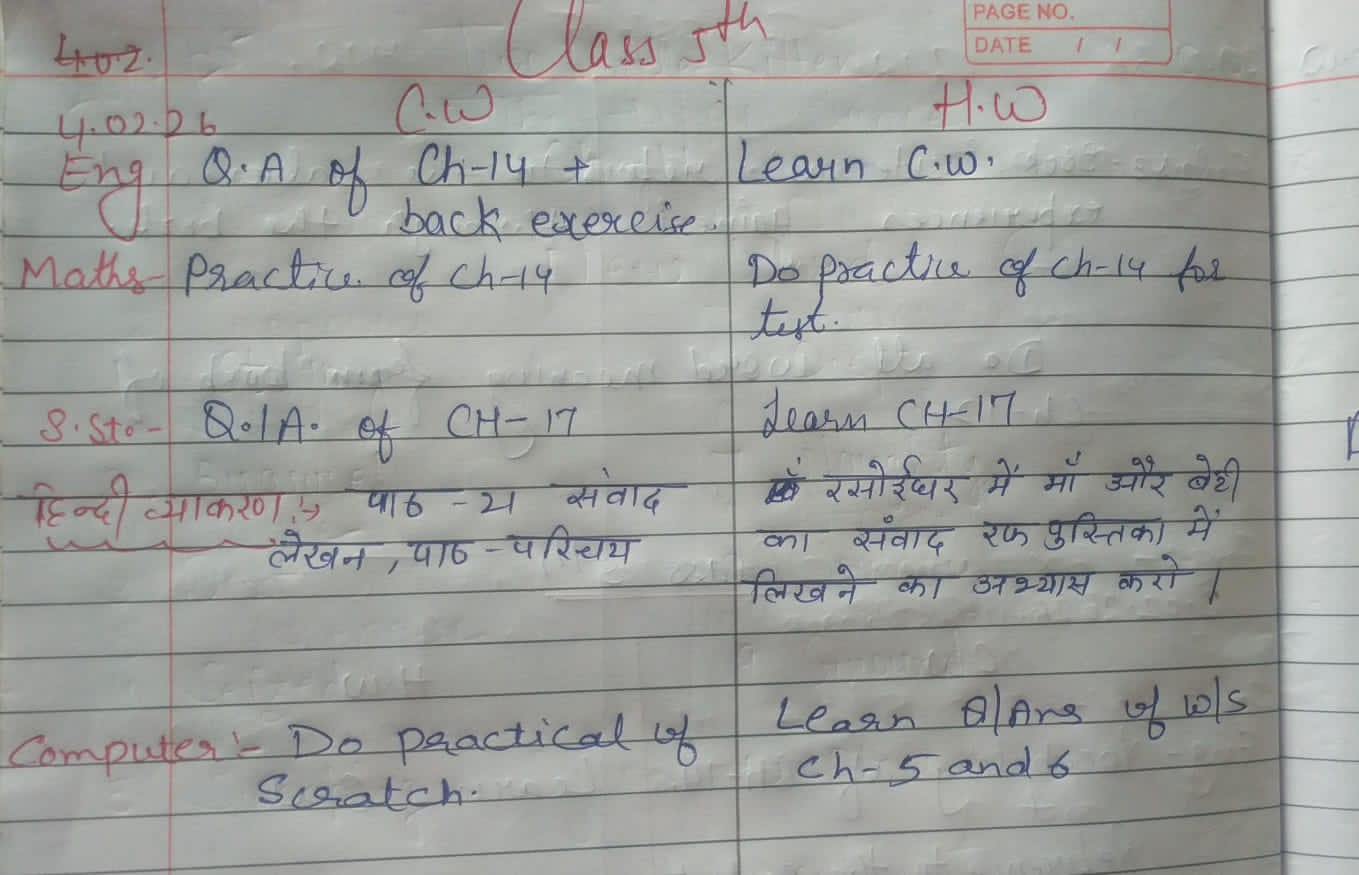 Class 5th
PAGE NO.
DATE / /
4.02.
4.02.26
C.W
H.W
Eng Q.A of Ch-14 +
back exercise.
Learn C.W.
Maths- Practice of Ch-14
Do practice of Ch-14 for
test.
S.St:- Q.|A. of CH-17
Learn CH-17
हिन्दी व्याकरण:→ पाठ -21 संवाद
लेखन, पाठ -परिचय
रसोईघर में माँ और बेटी
का संवाद रफ पुस्तिका में
लिखने का अभ्यास करो।
Computer:- Do practical of
Scratch.
Learn Q/Ans of W/S
Ch-5 and 6